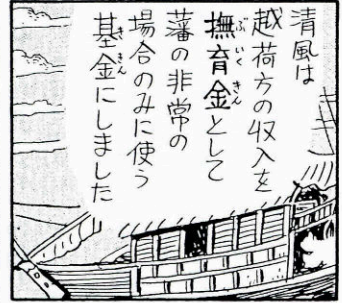 清風は
越荷方の収入を
撫育金として
藩の非常の
場合のみに使う
基金にしました